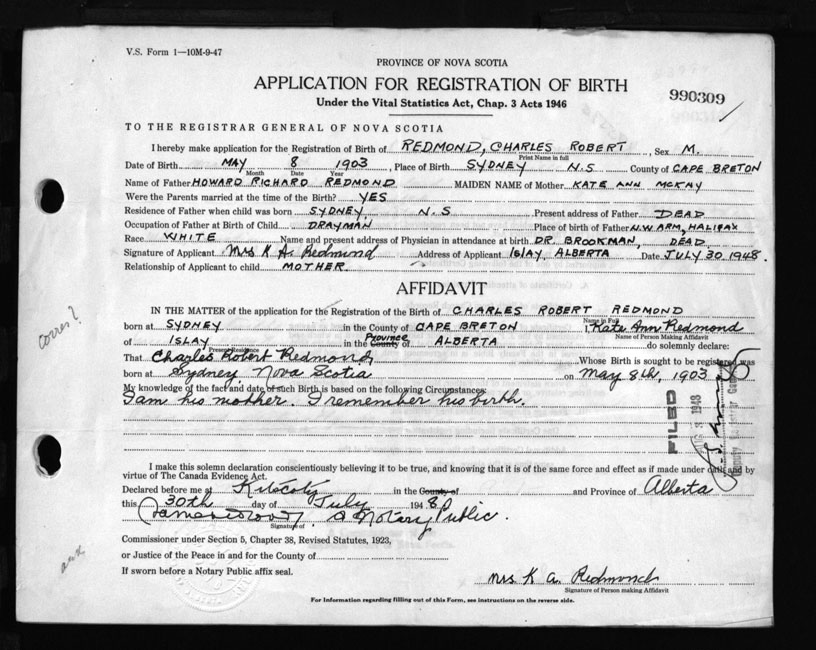 V.S. Form 1—10M-9-47
PROVINCE OF NOVA SCOTIA
APPLICATION FOR REGISTRATION OF BIRTH
Under the Vital Statistics Act, Chap. 3 Acts 1946
990309
TO THE REGISTRAR GENERAL OF NOVA SCOTIA
I hereby make application for the Registration of Birth of REDMOND, CHARLES ROBERT, Sex M.
Print Name in full
Date of Birth MAY 8 1903, Place of Birth SYDNEY N.S County of CAPE BRETON
Month Date Year
Name of Father HOWARD RICHARD REDMOND MAIDEN NAME of Mother KATE ANN MCKAY
Were the Parents married at the time of the Birth? YES
Residence of Father when child was born SYDNEY, N.S Present address of Father DEAD
Occupation of Father at Birth of Child DRAYMAN Place of birth of Father N.W ARM, HALIFAX
Race WHITE Name and present address of Physician in attendance at birth DR. BROOKMAN, DEAD
Signature of Applicant Mrs K A. Redmond Address of Applicant ISLAY, ALBERTA Date JULY 30 1948.
Relationship of Applicant to child MOTHER.
AFFIDAVIT
IN THE MATTER of the application for the Registration of the Birth of CHARLES ROBERT REDMOND
Name in Full
born at SYDNEY in the County of CAPE BRETON I, Kate Ann Redmond
Name of Person Making Affidavit
of ISLAY in the Province County of ALBERTA do solemnly declare:
Present Residence
That Charles Robert Redmond, Whose Birth is sought to be registered was
born at Sydney Nova Scotia on May 8th, 1903
My knowledge of the fact and date of such Birth is based on the following Circumstances:
I am his mother. I remember his birth.
FILED
1948
corres?
I make this solemn declaration conscientiously believing it to be true, and knowing that it is of the same force and effect as if made under oath and by
virtue of The Canada Evidence Act.
Declared before me at Kitscoty in the County of and Province of Alberta
this 30th day of July 1948
a Notary Public.
Signature of
Commissioner under Section 5, Chapter 38, Revised Statutes, 1923,
or Justice of the Peace in and for the County of
If sworn before a Notary Public affix seal.
Mrs K A. Redmond
Signature of Person making Affidavit
For Information regarding filling out of this Form, see instructions on the reverse side.